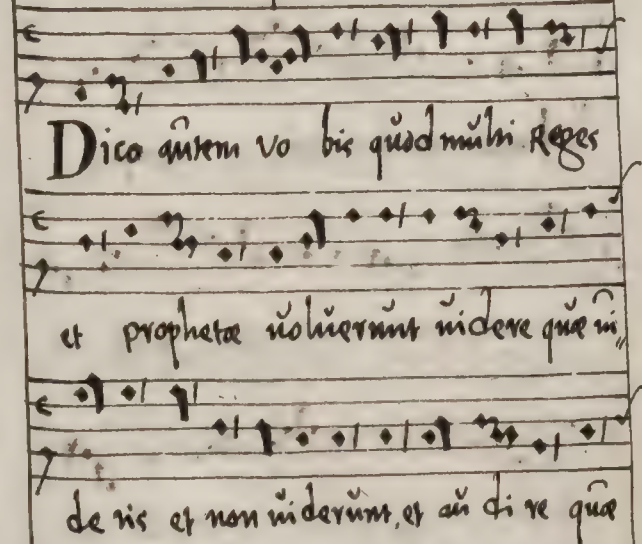 Dico autem vo bis quod multi Reges
et prophetæ voluerunt videre quæ vi,,
de tis et non viderunt, et au di re quæ